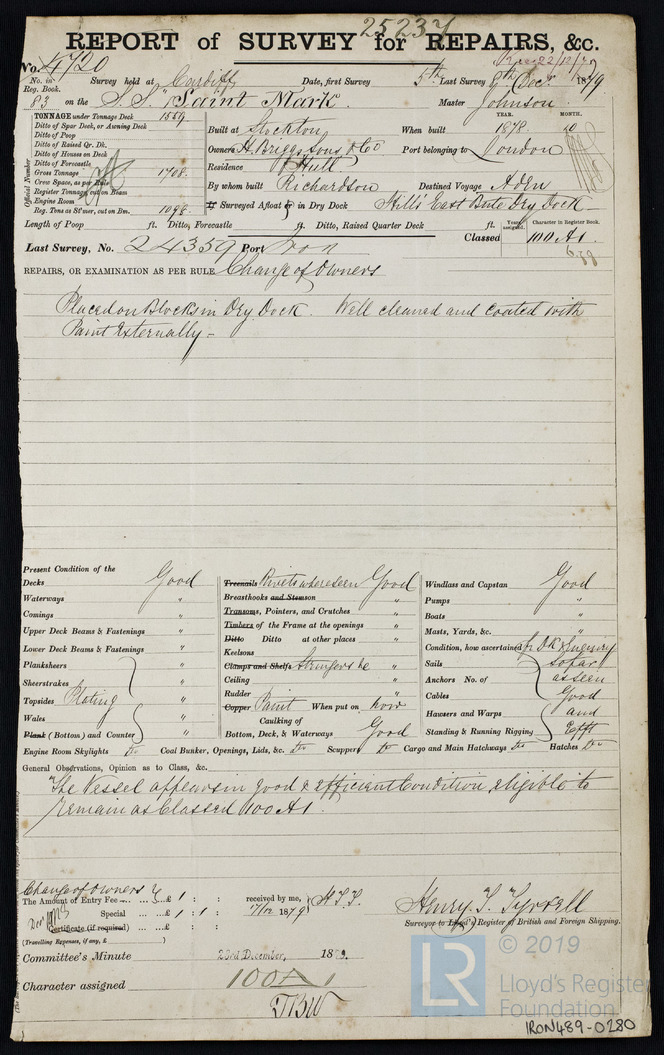 25237
REPORT of SURVEY for REPAIRS, &c.
No. 4720
No. in Reg. Book. Survey held at Cardiff Date, first Survey 5th Last Survey 9th Dec. 1879
83 on the S.S. "Saint Mark. Master Johnson
TONNAGE under Tonnage Deck 1559
Ditto of Spar Deck, or Awning Deck
Ditto of Poop
Ditto of Raised Qr. Dk.
Ditto of Houses on Deck
Ditto of Forecastle
Gross Tonnage 1708.
Crew Space, as per Rule
Register Tonnage, cut on Beam
Engine Room
Reg. Tons as St'mer, cut on Bm. 1098.
Official Number
Built at Stockton When built YEAR. 1878. MONTH. 10
Owners H. Briggs, Sons, & Co Port belonging to London
Residence Hull
By whom built Richardson Destined Voyage Aden
If Surveyed Afloat or in Dry Dock Hill's East Bute Dry Dock
Length of Poop ft. Ditto, Forecastle ft. Ditto, Raised Quarter Deck ft.
Last Survey, No. 24359 Port Iron Classed Years assigned. Character in Register Book. 100 A1.
REPAIRS, OR EXAMINATION AS PER RULE Change of Owners
Placed on Blocks in Dry Dock. Well cleaned and coated with
Paint Externally -
Present Condition of the
Decks Good
Waterways "
Comings "
Upper Deck Beams & Fastenings "
Lower Deck Beams & Fastenings "
Planksheers "
Sheerstrakes "
Topsides Plating "
Wales "
Plank (Bottom) and Counter "
Treenails Rivets where seen Good
Breasthooks and Stemson "
Transoms, Pointers, and Crutches "
Timbers of the Frame at the openings "
Ditto Ditto at other places "
Keelsons "
Clamps and Shelfs Stringers "
Ceiling "
Rudder "
Copper Paint When put on now
Caulking of
Bottom, Deck, & Waterways Good
Windlass and Capstan Good
Pumps "
Boats "
Masts, Yards, &c. "
Condition, how ascertained
Sails so far
Anchors No. of as seen
Cables Good
Hawsers and Warps and
Standing & Running Rigging Efft
Engine Room Skylights Do Coal Bunker, Openings, Lids, &c. Do Scuppers Do Cargo and Main Hatchways Do Hatches Do
General Observations, Opinion as to Class, &c.
The Vessel appears in good & efficient Condition eligible to
remain as Classed 100 A1.
Change of Owners
The Amount of Entry Fee £ 1 : : received by me,
Special £ 1 : 1 : 17/12 1879
Certificate (if required) :
(Travelling Expenses, if any, £ )
Henry. T. Tyrrell
Surveyor to Lloyd's Register of British and Foreign Shipping.
Committee's Minute 23rd December, 1879.
Character assigned 100 A 1
© 2019
LR
Lloyd's Register
Foundation
IRON489-0280